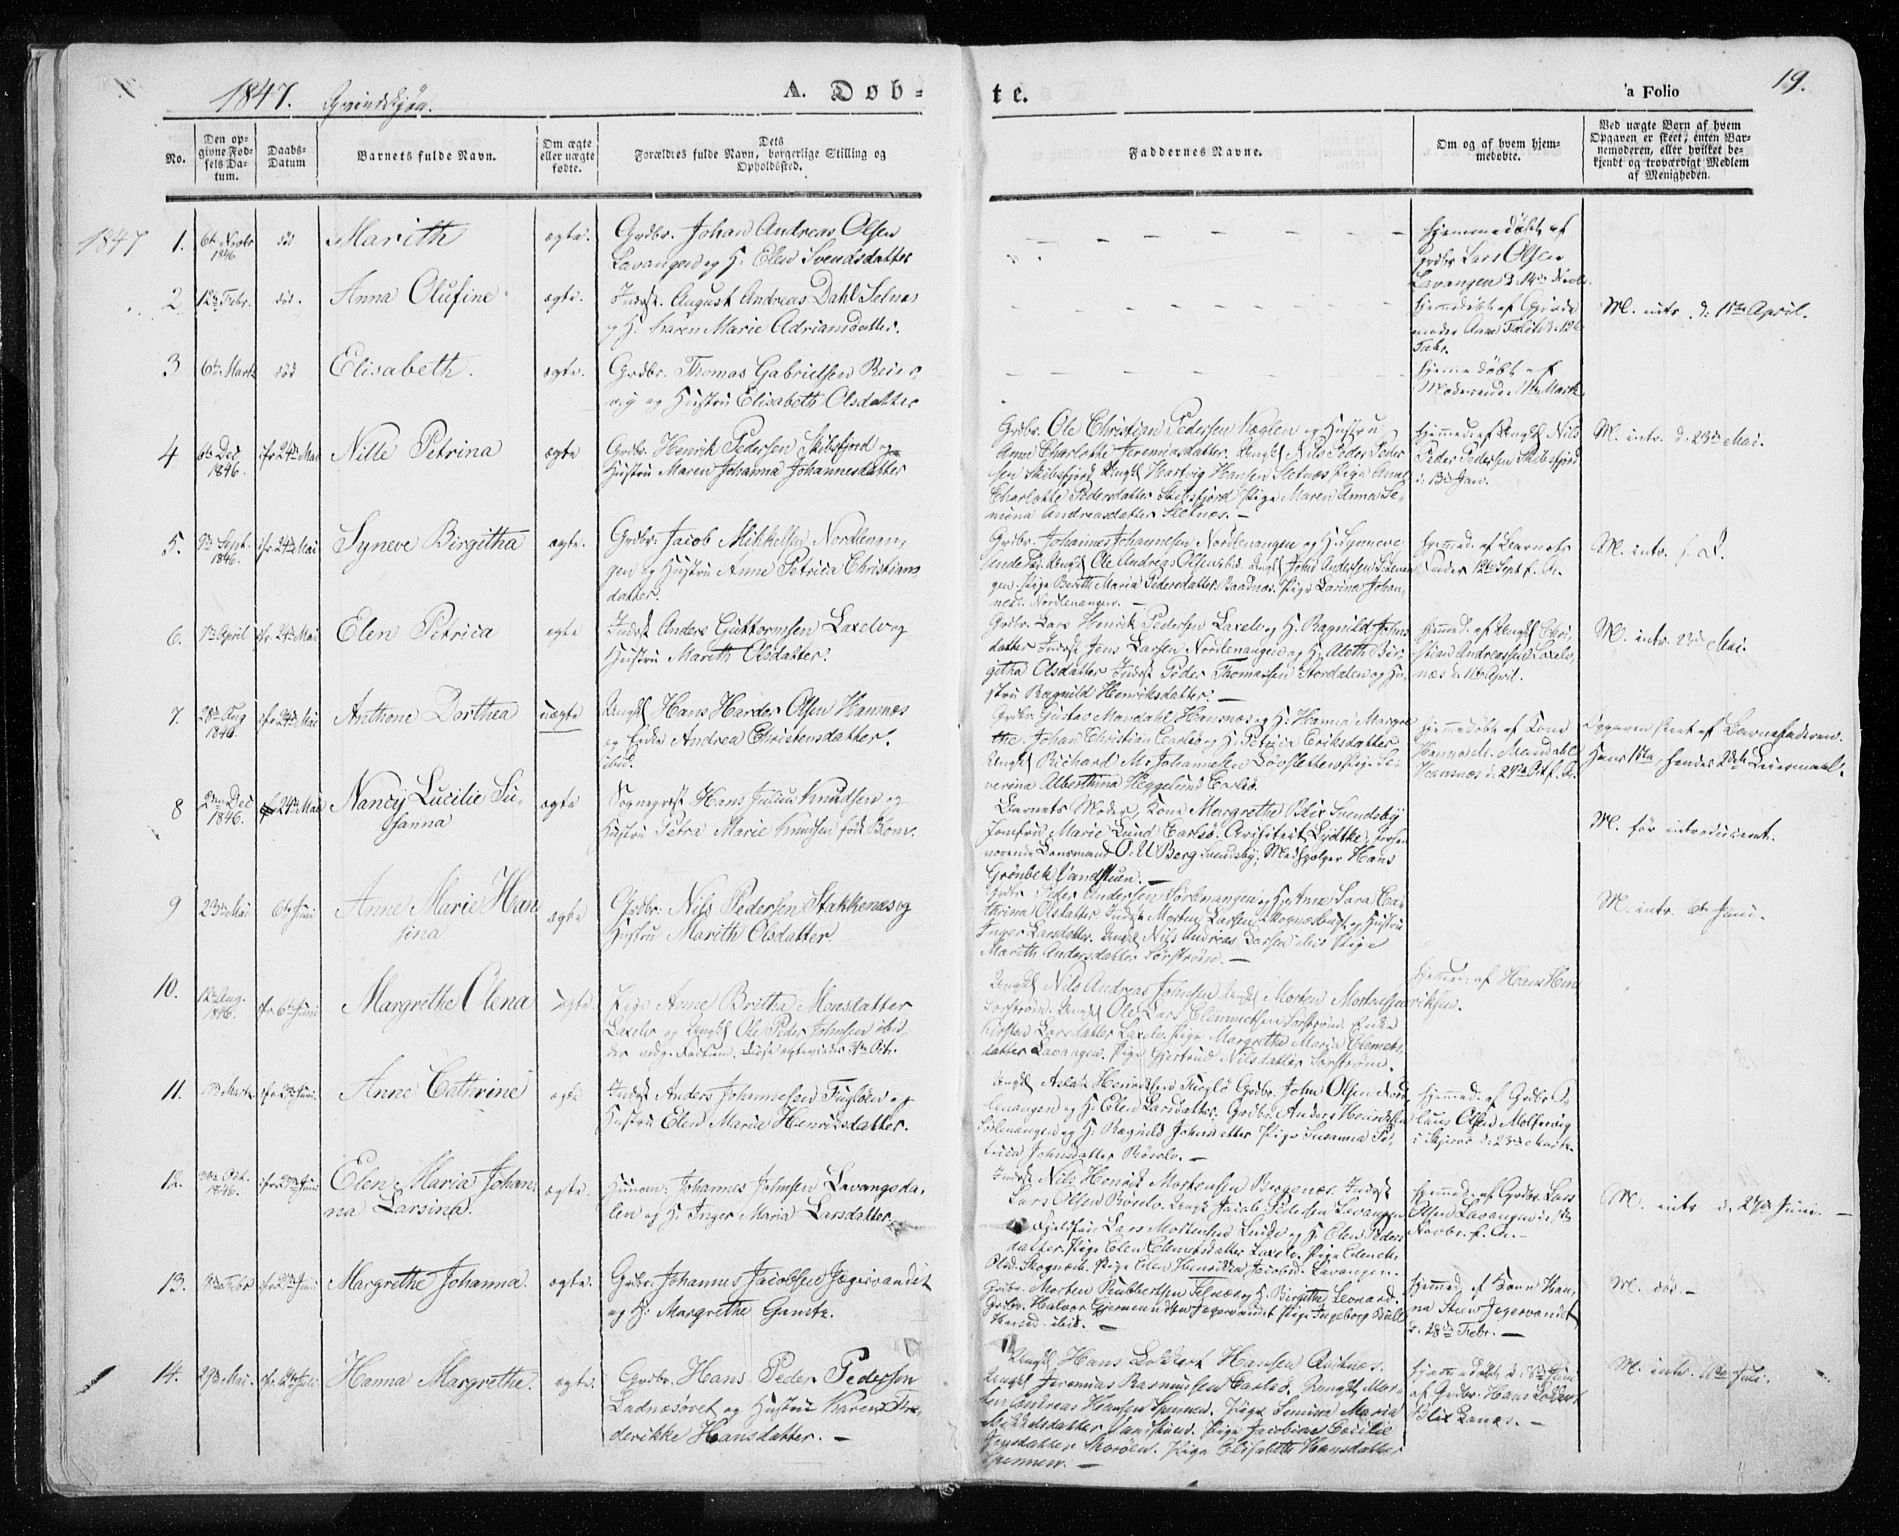 1847. Qvindekjön. A. Døb=
te. 'a Folio 19.
No.
Den op-
givne Fød-
sels Da-
tum.
Daabs-
Datum
Barnets fulde Navn.
Om ægte
eller uægte
fødte.
Dets
Forældres fulde Navn, borgerlige Stilling og
Opholdssted.
Faddernes Navne.
Om og af hvem hjem-
medøbte.
Ved uægte Børn af hvem
Opgaven er skeet, enten Bar-
nemoderen, eller hvilket be-
kjendt og troværdigt Medlem
af Menigheden.
1847
1. 6te Novbr 1846 död Marith ægte.
Grdbr. Johan Andreas Olsen
Lavangen og H. Elen Svendsdatter
Hjemmedöbt af
Grdbr Lars Olsen
Lavangen d. 14de Novbr.
2 12te Febr. död. Anna Olufine ægte.
Indst. August Andreas Dahl Selnæs
og H. Karen Marie Adriansdatter.
Hjemedöbt af Gjorde
moder Anne
Febr.
M. intr. d. 11te April.
3 6te Marts död Elisabeth. ægte.
Grdbr. Thomas Gabrielsen Rein
og Hustru Elisabeth Olsdatter
Hjemedöbt af
Moderen d. Marts
4 6te Dec 1846. cfr 24de Mai Nille Petrina ægte
Grdbr. Henrik Pedersen Skibsfjord og
Hustru Maren Johanna Johannesdatter
Grdbr. Ole Christian Pedersen Naglen og Hustru
Anne Charlotte Jeremiasdatter. Ungk. Nils Peder Peder
sen Skibsfjord Ungk. Hartvig Hansen Sletnæs Pige Anne
Charlotte Pedersdatter Skibsfjord Pige Maren Anna Se-
mina Andreasdatter Sletnæs. —
Hjemmed. af Ungk. Nils
Peder Pedersen Skibsfjord
d. 13de Jan.
M. intr. d. 23de Mai.
5. 9de Sept. 1846. cfr. 24de Mai Syneve Birgitha ægte.
Grdbr. Jacob Mikkelsen Nordlenan,
gen og Hustru Anne Petrica Christians
datter.
Grdbr. Johannes Johannesen Nordlenangen og H. Synneve
Andersd. Ungk. Ole Andreas Olsen ibid. Ungk. John Andersen Sörlenan
gen. Pige Berith Maria Pedersdatter Baadnæs. Pige Larina Johan-
nesd. Nordlenangen. —
Hjemmed. af Barnets
Fader 12te Sept. f. A.
M. intr. f. A.
6. 1ste April cfr. 24de Mai Elen Petrica ægte
Indst Anders Guttormsen Laxelv og
Hustru Marith Olsdatter.
Grdbr. Lars Henrik Pedersen Laxelv og H. Ragnild Johns
datter Indst Jens Larsen Nordlenangen og H. Aleth Bir-
githa Olsdatter Indst Peder Thomassen Stordalen og Hu-
stru Ragnild Henriksdatter. —
Hjemmed. af Ungk. Chri-
stian Andreassen Laxelv-
næs d. 11te April.
M. intr. 23de Mai.
7. 28de Aug 1846. cfr 24de Mai Anthone Dorthea uægte
Ungk. Hans Hardes Olsen Hannæs
og Enke Andrea Christensdatter
ibid.
Grdbr. Gustav Mandahl Hansnæs og H. Hanna Margre
the. Johan Christian Carlsö og H. Petrica Eriksdatter
Ungk. Richard M. Johannesen Lövsletten Pige Se-
verina Alberthina Heggelund Carlsö.
Hjemmedöbt af Kone
Hanna M. Mandahl
Hansnæs d. 27de Oct. f. A.
Opgaven skeet af Barnefaderen.
Hans 1ste, hendes 2det Leiermaal.
8 2den Dec 1846. 24de Mai Nancy Lucilie Su-
sanna ægte
Sognepræst Hans Julius Knudsen og
Hustru Petra Marie Knudsen födt Bonv.
Barnets Moder, Kone Margrethe Blix Svendsby
Jomfru Marie Lund Carlsö. Lydtke, forhen
værende Lensmand O. U Berg Svendsby, Medhjælper Hans
Grönbek Vandstuen. —
M. för introduceret.
9 23de Mai 6te Juni Anne Marie Han
sina ægte
Grdbr. Nils Pedersen Stakkenæs og
Hustru Marith Olsdatter.
Grdbr. Peder Andersen Sörlenangen og H. Anne Sara Ca-
thrina Olsdatter Indst Morten Larsen og Hustru
Inger Larsdatter. Ungk. Nils Andreas Larsen ibid Pige
Marith Andersdatter Sörström. —
M. intr. 6te Juni.
10. 12te Aug. 1846. cfr 6te Juni Margrethe Olena ægte.
Pige Anne Britha Monsdatter
Laxelv og Ungk. Ole Peder Johnsen
Ungk. Nils Andreas Johnsen. Ungk. Morten Mortensen
Sörström. Ungk. Ole Lars Clemmetsen Sörström. Enke
Kirsten Larsdatter Laxelv. Pige Margrethe Maria Clemets-
datter Lavangen. Pige Gjertrud Nilsdatter Sörström.
Hjemmed. af Hans Hen
riksen.
11. Marts Juni Anne Cathrine ægte
Indst Anders Johannesen Fuglöen og
Hustru Elen Maria Henriksdatter.
Ungk. Aslak Henriksen Fuglö Grdbr. John Olsen Nord-
lenangen og H. Elen Larsdatter. Grdbr. Anders Henriksen
Sörlenangen og H. Ragnild Johnsdatter Pige Susanna Pe-
trica Johnsdatter Röselv. —
Hjemmed. af Grdbr. O-
laus Olsen Molteneig
i Skjervö d. 23de Marts.
12. 30te Oct. 1846. cfr. Juni Elen Maria Johan-
na Larsina. ægte.
Huusm. Johannes Johnsen Lavangsda-
len og H. Inger Maria Larsdatter
Indst Nils Henrik Mortensen Bergenæs. Indst
Lars Olsen Röselv. Ungk. Jacob Pedersen Lavangen
Lars Mortensen og H. Elen Peders
datter. Pige Elen Clemetsdatter Laxelv. Pige
Olsd. Skognæs. Pige Elen Henrikka Jacobsd. Lavangen.
Hjemmed. af Grdbr. Lars
Olsen Lavangen d.
Novbr. f. A. —
M. intr d. 27de Juni. —
13. Febr cfr. Juni Margrethe Johanna. ægte.
Grdbr. Johannes Jacobsen Jægervandet
og H. Margrethe Gunstr.
Grdbr. Morten Rubbertsen Selnæs og H. Birgitha Leonard.
Grdbr. Halvor Gjermundsen Jægervandet Pige Ingeborg Bull
Hansd. ibid. —
Hjemmed af Kone Han-
na Steen Jegervandet
d. 28de Febr. —
M. död. —
14. 29de Mai. Juli Hanna Margrethe. ægte.
Grdbr. Hans Peder Pedersen
Ladnæsöret og Hustru Karen Fre-
derikke Hansdatter. —
Ungk. Hans Lokkert Hansen
Ungk. Jeremias Rasmussen Carlsö. Ungk. Mor-
ten Andreas Hansen Spennen. Pige Semine Maria
Mikkelsdatter Vandstuen. Pige Jacobine Cecilie
Jensdatter Skoröen. Pige Elisabeth Hansdatter
Spennen. —
Hjemmedöbt d. Juni
af Grdbr. Hans Lokkert
Blix Lanæs. —
M. intr. Juli.